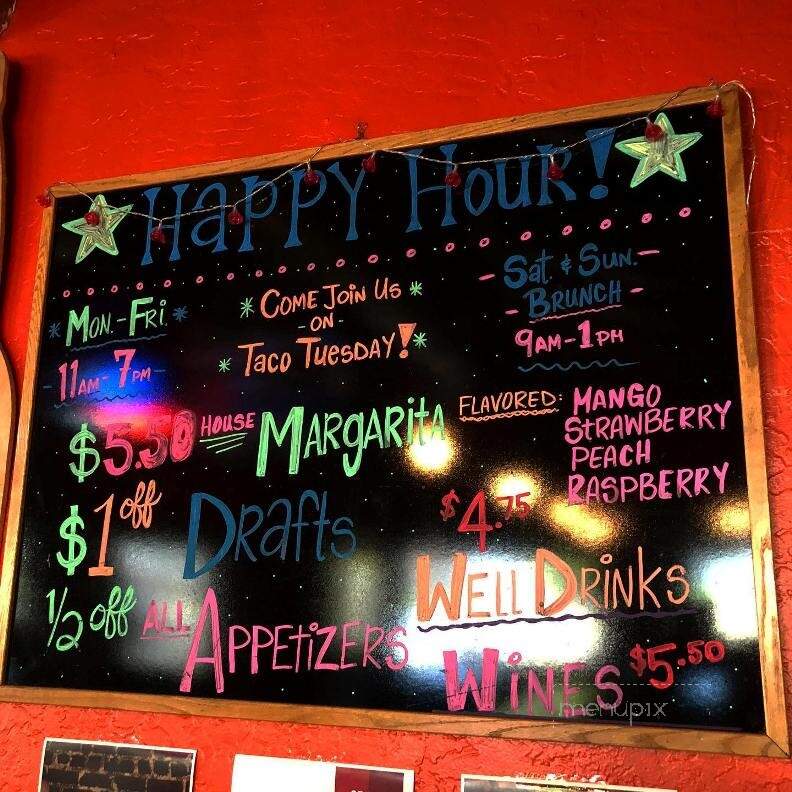 Happy Hour!
Mon.-Fri.
11am-7pm
Come Join Us
-on-
Taco Tuesday!
Sat & Sun.
Brunch
9am-1pm
$5.50 House Margarita
Flavored: Mango
Strawberry
Peach
Raspberry
$1 off Drafts
$4.75
Well Drinks
1/2 off All Appetizers
Wines $5.50
menupix